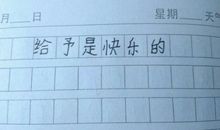 月 日 星期 天气
给予是快乐的